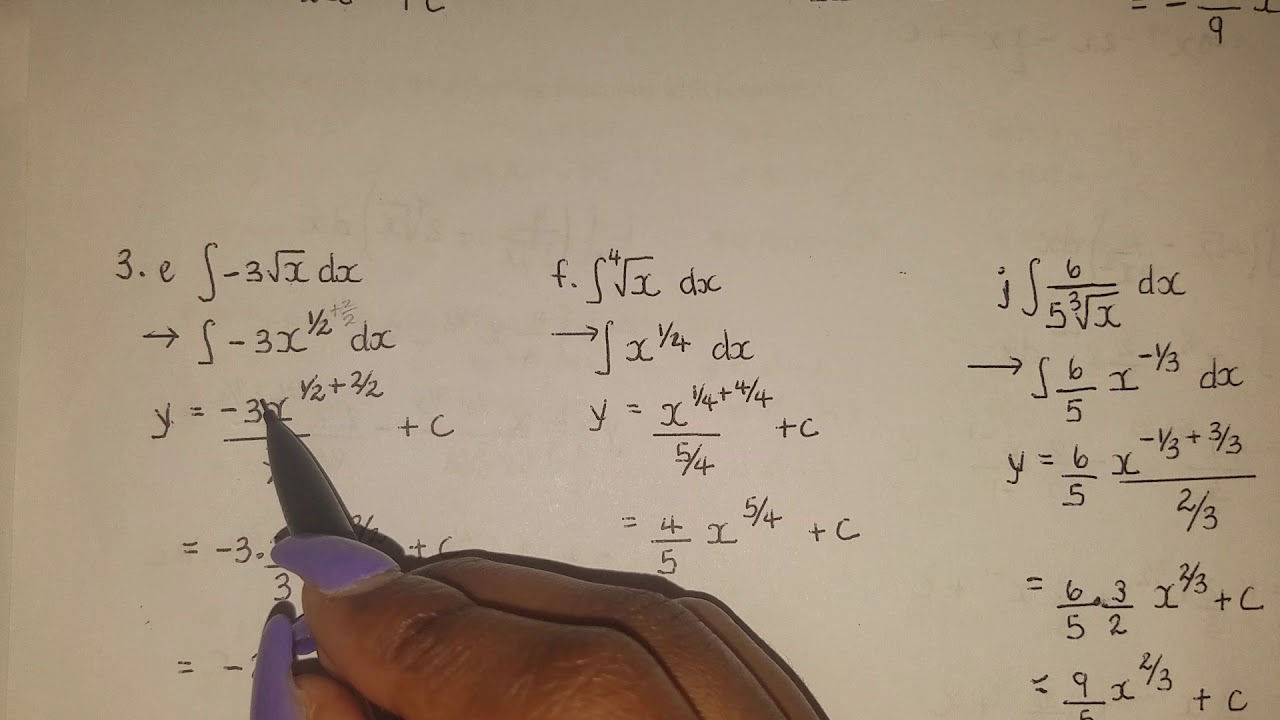 + C
= - 9
3. e ∫ -3√x dx
→ ∫ -3x^1/2 +2/2 dx
y = -3x^1/2 + 2/2 + C
= -3 . 3 + C
= -
f. ∫ ⁴√x dx
→ ∫ x^1/4 dx
y = x^1/4 + 4/4 / 5/4 + C
= 4/5 x^5/4 + C
j ∫ 6 / 5³√x dx
→ ∫ 6/5 x^-1/3 dx
y = 6/5 x^-1/3 + 3/3 / 2/3
= 6/5 . 3/2 x^2/3 + C
= 9/5 x^2/3 + C